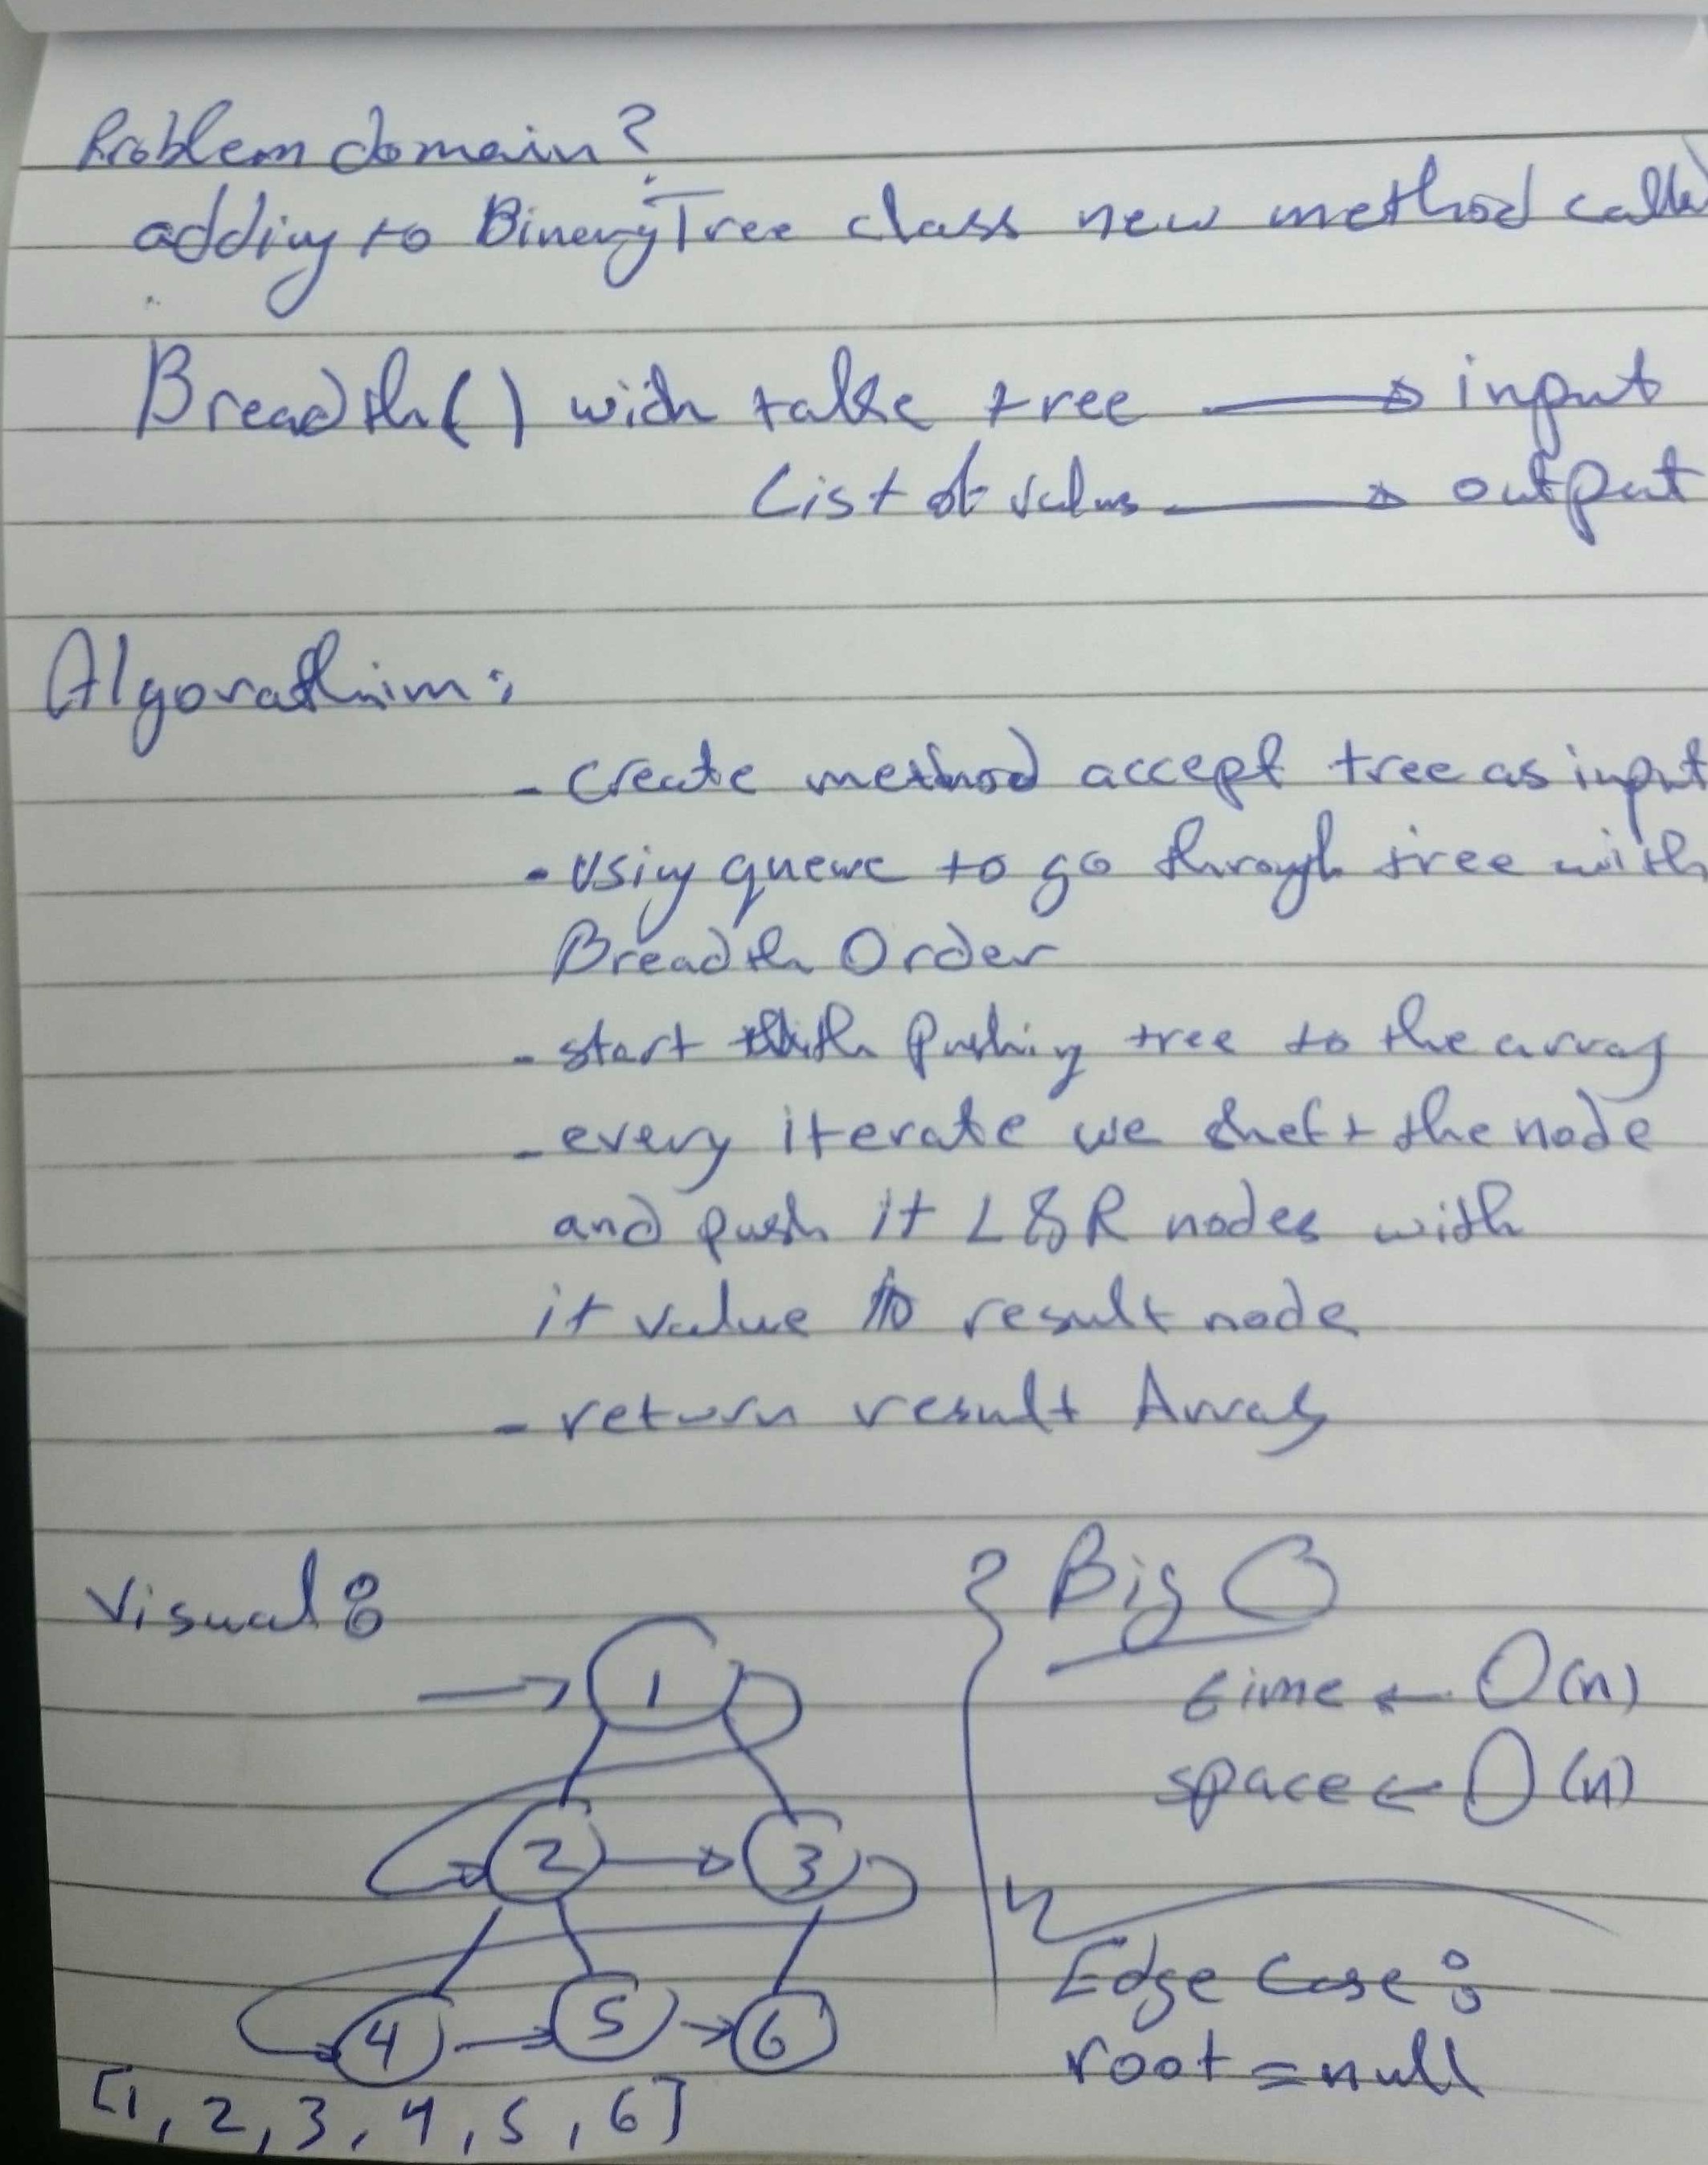 Problem domain?
adding to BinaryTree class new method calle
Breadth() wich take tree → input
List of values → output
Algorathim:
- create method accept tree as input
- Using queue to go through tree with
Breadth Order
- start with Pushing tree to the array
- every iterate we sheft the node
and push it L & R nodes with
it value to result node
- return result Array
Visual:
1
2 → 3
4 → 5 → 6
[1, 2, 3, 4, 5, 6]
Big O
time ← O(n)
space ← O(n)
Edge Case:
root = null